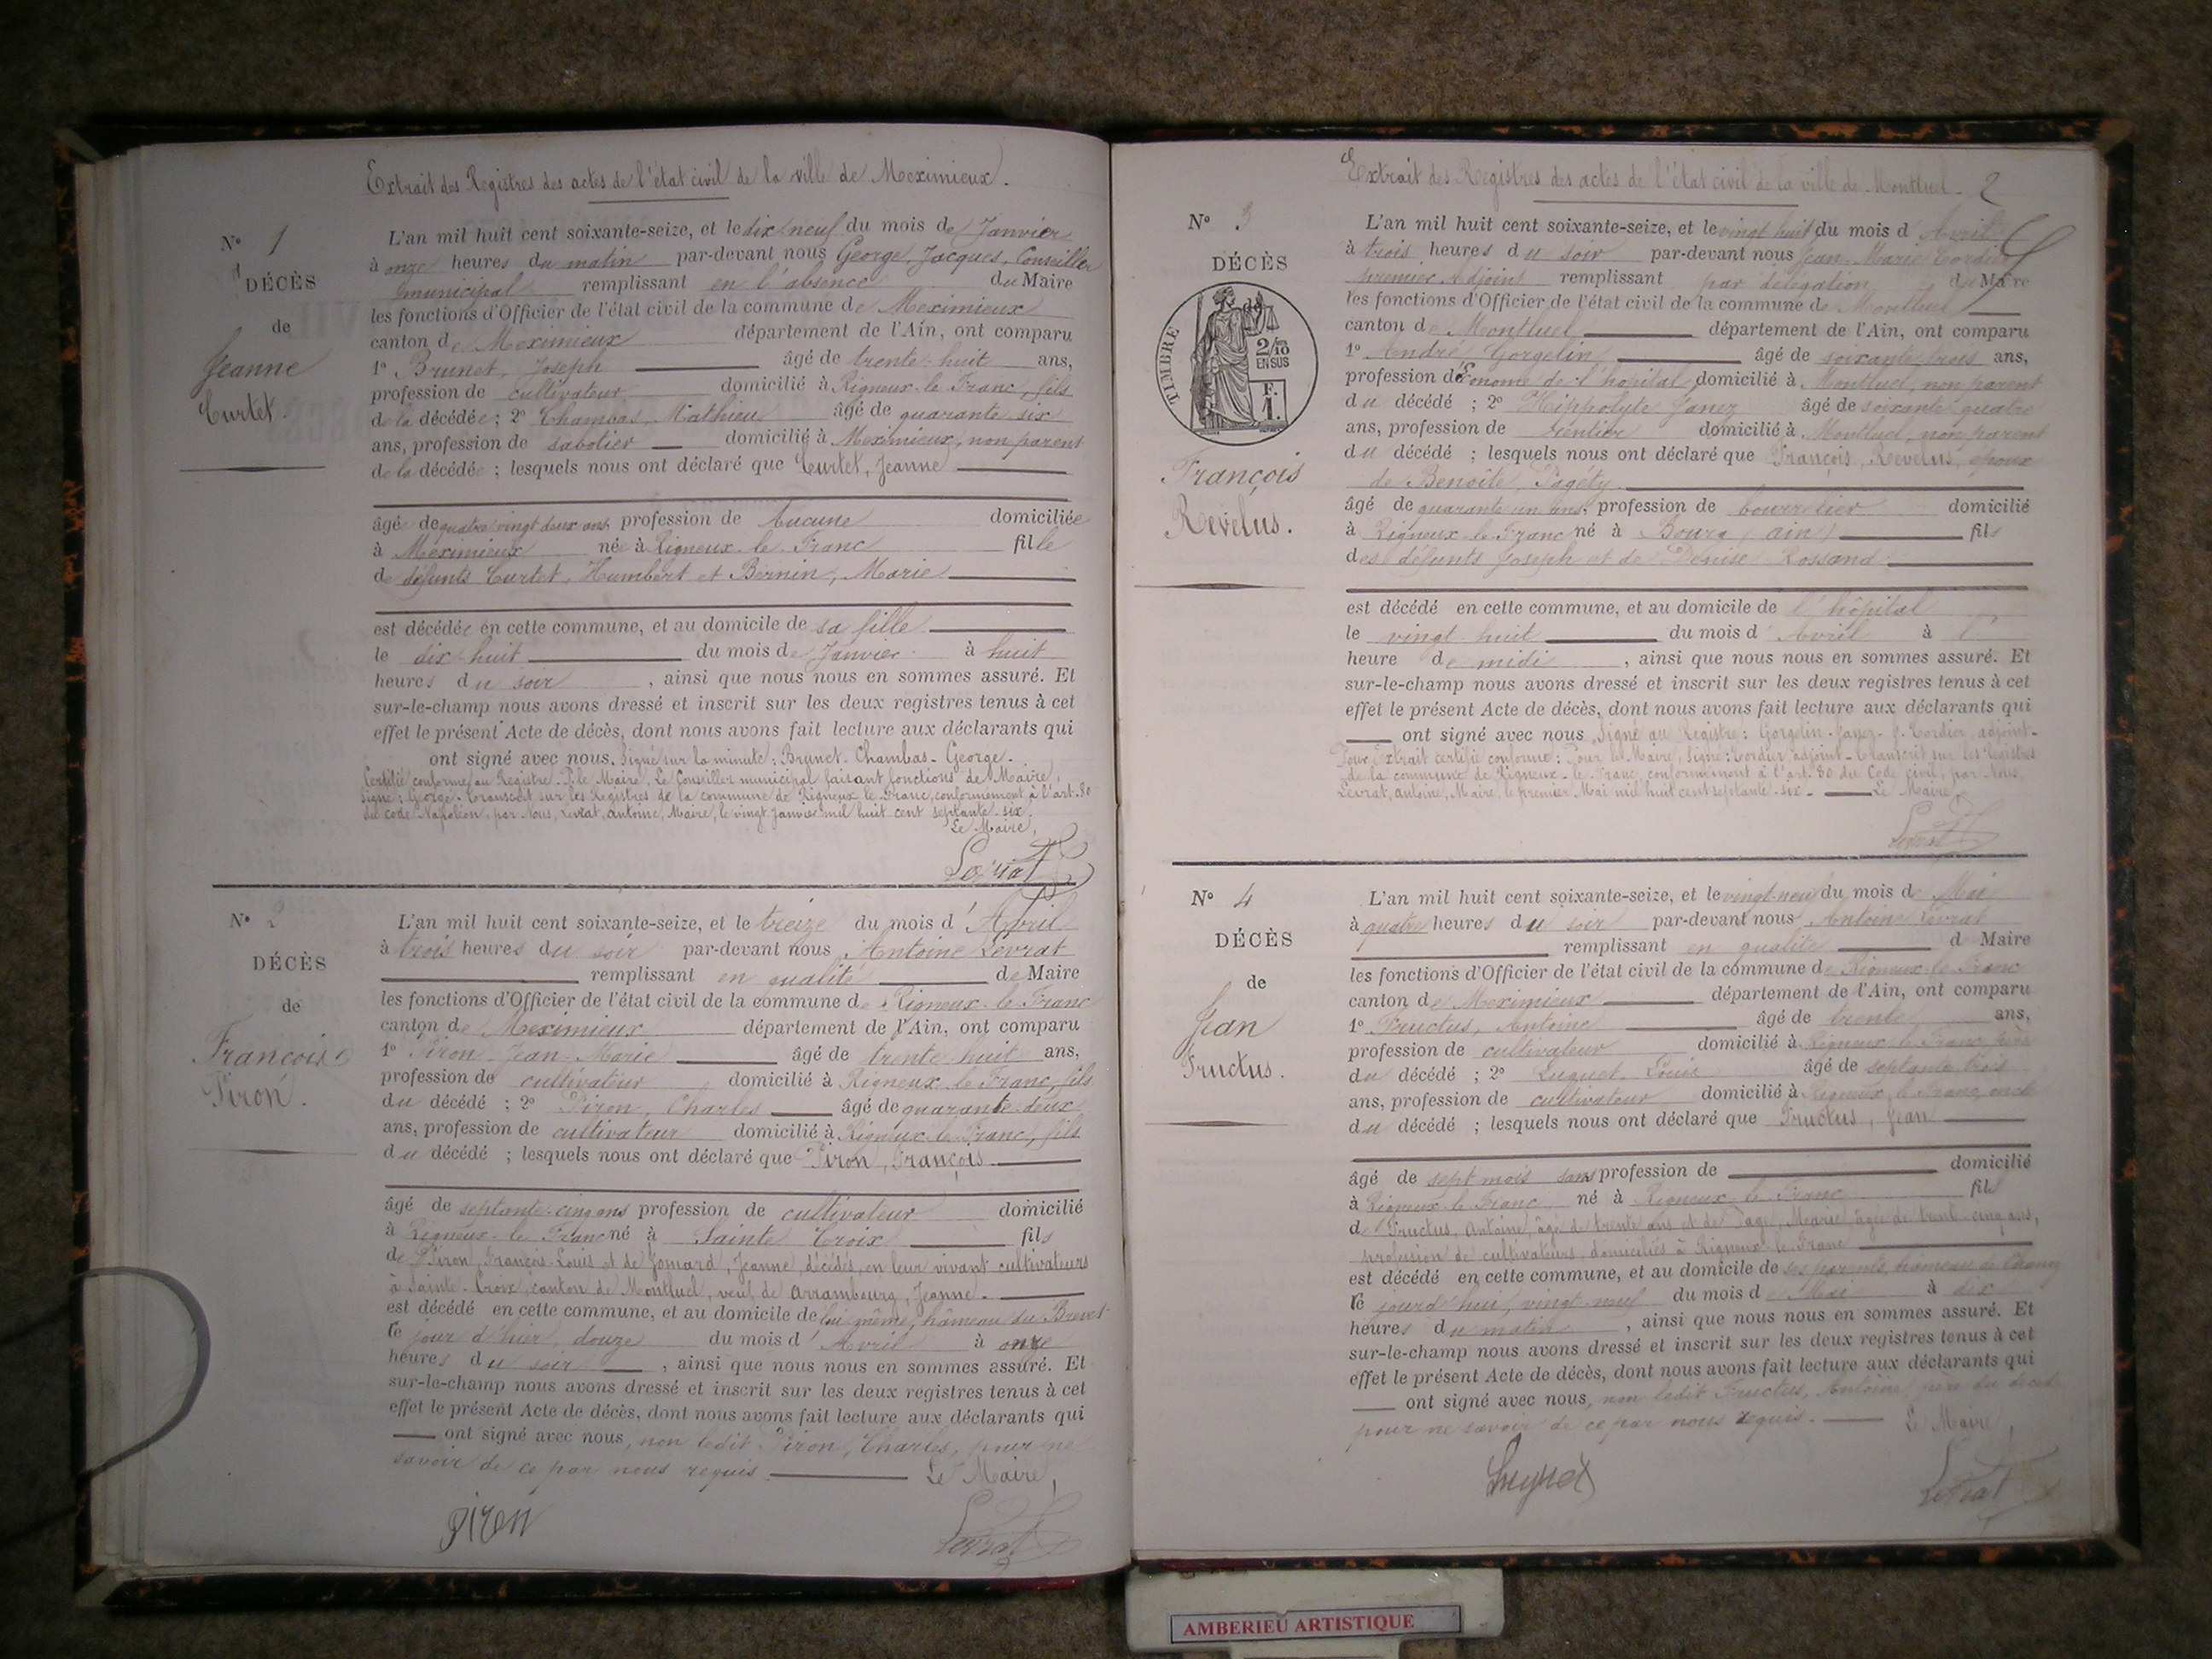 Extrait des Registres des actes de l'état civil de la ville de Meximieux.
N° 1
DÉCÈS
de
Jeanne
Curtet.
L'an mil huit cent soixante-seize, et le dix neuf du mois de Janvier
à onze heures du matin par-devant nous George, Jacques, Conseiller
municipal remplissant en l'absence du Maire
les fonctions d'Officier de l'état civil de la commune de Meximieux
canton de Meximieux département de l'Ain, ont comparu
1° Brunet, Joseph âgé de trente-huit ans,
profession de cultivateur domicilié à Rigneux-le-Franc, fils
de la décédée ; 2° Chambas, Mathieu âgé de quarante-six
ans, profession de sabotier domicilié à Meximieux, non parent
de la décédée ; lesquels nous ont déclaré que Curtet, Jeanne
âgée de quatre vingt deux ans profession de Aucune domiciliée
à Meximieux née à Rigneux-le-Franc fille
de défunts Curtet, Humbert et Bernin, Marie
est décédée en cette commune, et au domicile de sa fille
le dix-huit du mois de Janvier à huit
heures du soir , ainsi que nous nous en sommes assuré. Et
sur-le-champ nous avons dressé et inscrit sur les deux registres tenus à cet
effet le présent Acte de décès, dont nous avons fait lecture aux déclarants qui
ont signé avec nous. Signé sur la minute : Brunet - Chambas - George.
Certifié conforme au Registre. P. le Maire, Le Conseiller municipal faisant fonctions de Maire,
signé : George. Transcrit sur les Registres de la commune de Rigneux le Franc, conformément à l'art. 80
du code Napoléon, par Nous, Levrat, Antoine, Maire, le vingt Janvier mil huit cent septante-six.
Le Maire,
Levrat
N° 2
DÉCÈS
de
François
Piron.
L'an mil huit cent soixante-seize, et le treize du mois d'Avril
à trois heures du soir par-devant nous Antoine Levrat
remplissant en qualité de Maire
les fonctions d'Officier de l'état civil de la commune de Rigneux-le-Franc
canton de Meximieux département de l'Ain, ont comparu
1° Piron Jean-Marie âgé de trente-huit ans,
profession de cultivateur domicilié à Rigneux-le-Franc, fils
du décédé ; 2° Piron, Charles âgé de quarante-deux
ans, profession de cultivateur domicilié à Rigneux-le-Franc, fils
du décédé ; lesquels nous ont déclaré que Piron, François
âgé de septante-cinq ans profession de cultivateur domicilié
à Rigneux-le-Franc né à Sainte Croix fils
de Piron, François-Louis et de Jomard, Jeanne, décédés, en leur vivant cultivateurs
à Sainte-Croix, canton de Montluel, veuf de Arrambourg, Jeanne.
est décédé en cette commune, et au domicile de lui même, hameau du
le jour d'hier, douze du mois d'Avril à onze
heures du soir , ainsi que nous nous en sommes assuré. Et
sur-le-champ nous avons dressé et inscrit sur les deux registres tenus à cet
effet le présent Acte de décès, dont nous avons fait lecture aux déclarants qui
ont signé avec nous, non ledit Piron, Charles, pour ne
savoir de ce par nous requis. Le Maire,
Piron
Levrat
Extrait des Registres des actes de l'état civil de la ville de Montluel. 2
N° 3
DÉCÈS
TIMBRE
2/10
EN SUS
F.
1.
François
Revelus.
L'an mil huit cent soixante-seize, et le vingt huit du mois d'Avril
à trois heures du soir par-devant nous Jean-Marie Cordier
premier Adjoint remplissant par délégation du Maire
les fonctions d'Officier de l'état civil de la commune de Montluel
canton de Montluel département de l'Ain, ont comparu
1° André Gorgelin âgé de soixante-trois ans,
profession d'Econome de l'hopital domicilié à Montluel, non parent
du décédé ; 2° Hippolyte Janez âgé de soixante quatre
ans, profession de rentier domicilié à Montluel, non parent
du décédé ; lesquels nous ont déclaré que François, Revelus, époux
de Benoîte
âgé de quarante un ans, profession de bourrelier domicilié
à Rigneux-le-Franc né à Bourg (ain) fils
des défunts Joseph et de Denise Rossand
est décédé en cette commune, et au domicile de l'hôpital
le vingt-huit du mois d'Avril à l'
heure de midi , ainsi que nous nous en sommes assuré. Et
sur-le-champ nous avons dressé et inscrit sur les deux registres tenus à cet
effet le présent Acte de décès, dont nous avons fait lecture aux déclarants qui
ont signé avec nous. Signé au Registre : Gorgelin - Janez - J. Cordier, adjoint -
Pour Extrait certifié conforme : Pour le Maire, signé : Cordier adjoint - Transcrit sur les Registres
de la commune de Rigneux-le-Franc, conformément à l'art. 80 du Code civil, par Nous,
Levrat, Antoine, Maire, le premier Mai mil huit cent septante-six - Le Maire,
Levrat
N° 4
DÉCÈS
de
Jean
Fructus.
L'an mil huit cent soixante-seize, et le vingt-neuf du mois de Mai
à quatre heures du soir par-devant nous Antoine Levrat
remplissant en qualité d Maire
les fonctions d'Officier de l'état civil de la commune de Rigneux-le-Franc
canton de Meximieux département de l'Ain, ont comparu
1° Fructus, Antoine âgé de trente ans,
profession de cultivateur domicilié à Rigneux-le-Franc, père
du décédé ; 2° Luquet, Louis âgé de septante trois
ans, profession de cultivateur domicilié à Rigneux-le-Franc, oncle
du décédé ; lesquels nous ont déclaré que Fructus, Jean
âgé de sept mois sans profession de domicilié
à Rigneux-le-Franc né à Rigneux-le-Franc fils
de Fructus, Antoine, âgé de trente ans et de Page, Marie âgée de trente-cinq ans,
profession de cultivateurs, domiciliés à Rigneux-le-Franc
est décédé en cette commune, et au domicile de ses parents, hameau de
le jourd'hui, vingt-neuf du mois de Mai à dix
heures du matin , ainsi que nous nous en sommes assuré. Et
sur-le-champ nous avons dressé et inscrit sur les deux registres tenus à cet
effet le présent Acte de décès, dont nous avons fait lecture aux déclarants qui
ont signé avec nous, non ledit Fructus, Antoine, père du décédé
pour ne savoir de ce par nous requis. Le Maire,
Luquet
Levrat
AMBERIEU ARTISTIQUE